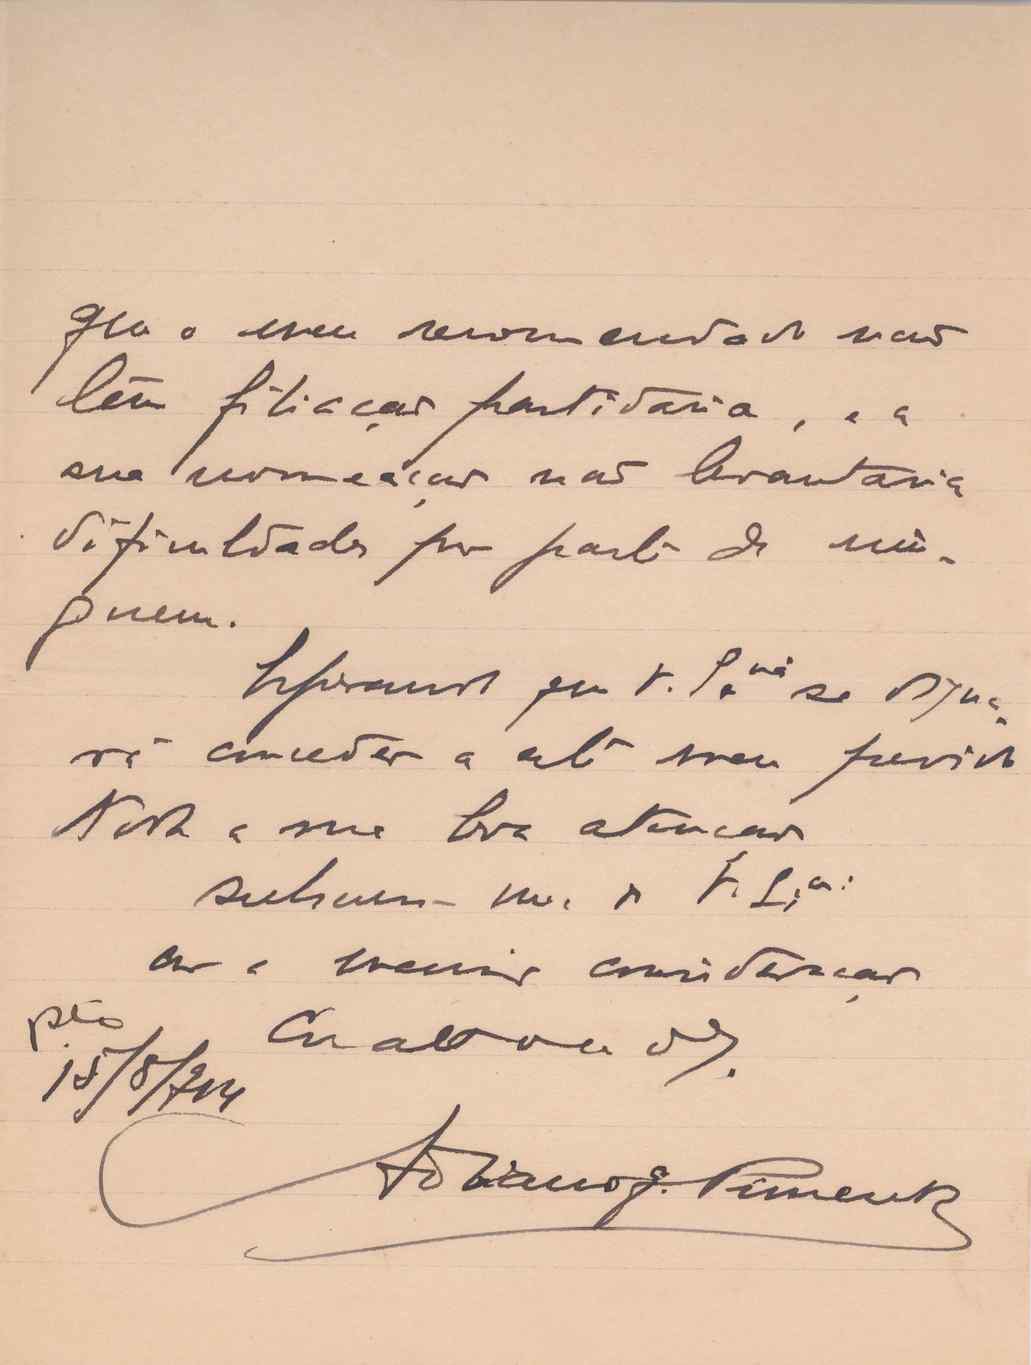 que o meu recomendado não
tem filiação partidaria, e a
sua nomeação não levantaria
dificuldades por parte de nin-
guem.
Esperando que V. Sª se digna-
rá conceder a este meu pedido
toda a sua boa atenção
subscrevo-me de V.
com a maior consideração
Pto
15/8/914
Adriano G. Pimenta